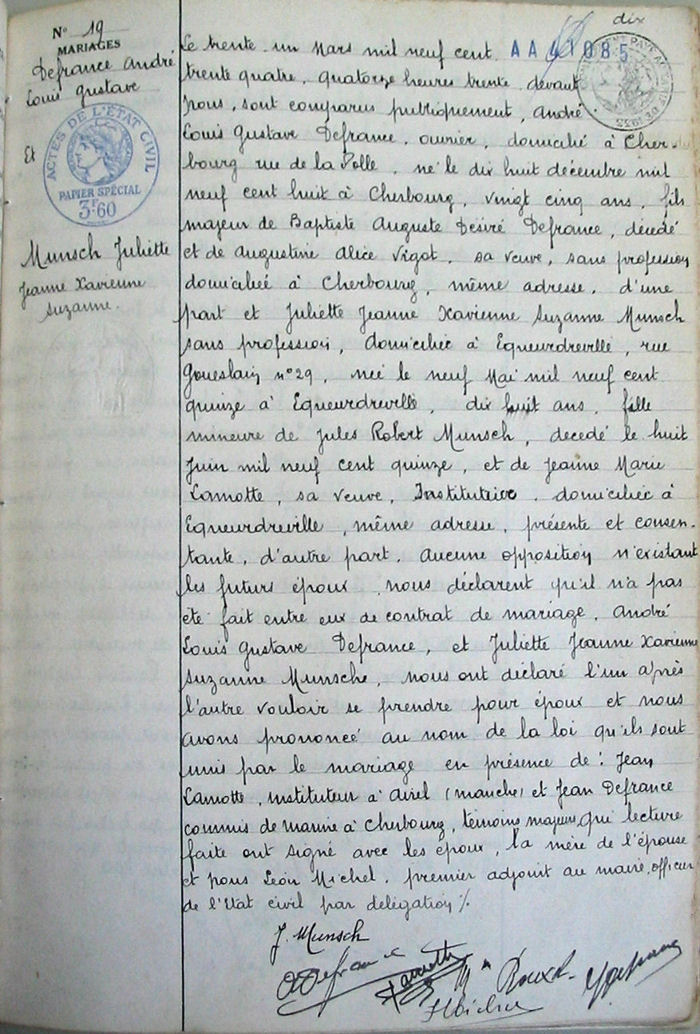 dix
N° 19
MARIAGES
Defrance André
Louis Gustave
Et
ACTES DE L'ÉTAT CIVIL
PAPIER SPÉCIAL
3F60
Munsch Juliette
Jeanne Xavienne
Suzanne.
AA41085
Le trente un Mars mil neuf cent
trente quatre, quatorze heures trente, devant
nous, sont comparus publiquement, André
Louis Gustave Defrance, ouvrier, domicilié à Cher-
bourg rue de la Polle, né le dix huit décembre mil
neuf cent huit à Cherbourg, vingt cinq ans, fils
majeur de Baptiste Auguste Désiré Defrance, décédé
et de Augustine Alice Vigot, sa veuve, sans profession
domiciliée à Cherbourg, même adresse, d'une
part et Juliette Jeanne Xavienne Suzanne Munsch
sans profession, domiciliée à Equeurdreville, rue
Goueslain n°29, née le neuf Mai mil neuf cent
quinze à Equeurdreville, dix huit ans, fille
mineure de Jules Robert Munsch, décédé le huit
Juin mil neuf cent quinze, et de Jeanne Marie
Lamotte, sa veuve, Institutrice, domiciliée à
Equeurdreville, même adresse, présente et consen-
tante, d'autre part. Aucune opposition n'existant
les futurs époux nous déclarent qu'il n'a pas
été fait entre eux de contrat de mariage. André
Louis Gustave Defrance, et Juliette Jeanne Xavienne
Suzanne Munsche, nous ont déclaré l'un après
l'autre vouloir se prendre pour époux et nous
avons prononcé au nom de la loi qu'ils sont
unis par le mariage en présence de : Jean
Lamotte, instituteur à Airel (Manche) et Jean Defrance
commis de marine à Cherbourg, témoins majeurs, qui lecture
faite ont signé avec les époux, la mère de l'épouse
et nous Léon Michel, premier adjoint au maire, officier
de l'Etat civil par délégation ./.
J. Munsch
ADefrance